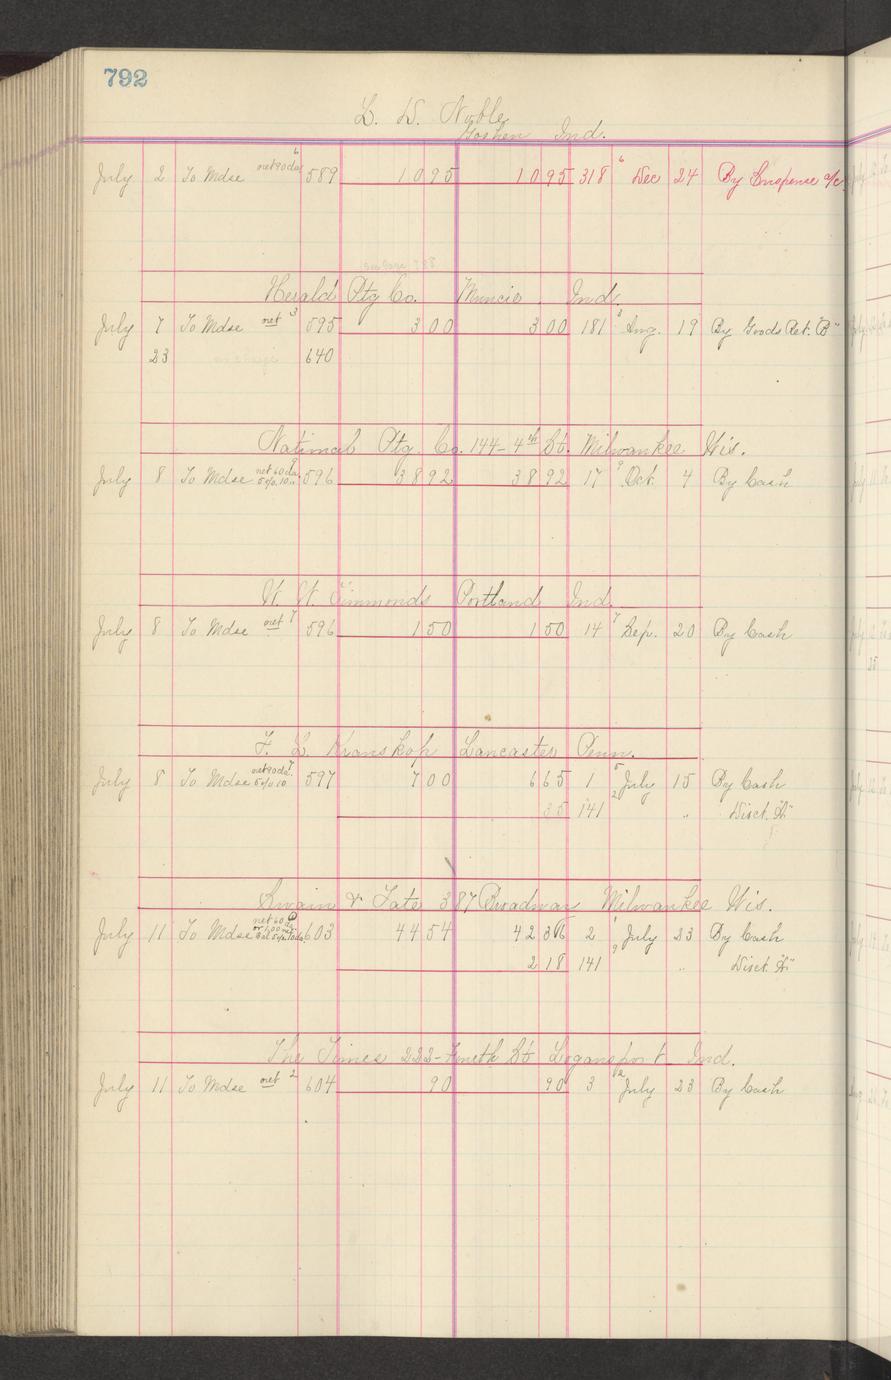 792
L. D. Noble
Goshen Ind.
July 2 To Mdse net 90 da 6 589 1095 1095 318 6 Dec 24 By Suspense a/c
See Page 788
Herald Ptg Co. Muncie Ind.
July 7 To Mdse net 3 595 300 300 181 3 Aug. 19 By Goods Ret. "B"
23 640
National Ptg. Co. 144-4th St. Milwaukee Wis.
July 8 To Mdse net 60 da. 9 5% 10 596 3892 3892 17 9 Oct. 4 By Cash
W. W. Timmonds Portland Ind.
July 8 To Mdse net 7 596 150 150 14 7 Sep. 20 By Cash
F. L. Kranskop Lancaster Penn.
July 8 To Mdse net 90 da. 5% 10 597 700 665 1 5 July 15 By Cash
35 141 2 " Disct. "A"
Swain & Tate 387 Broadway Milwaukee Wis.
July 11 To Mdse net 60 da 603 4454 4236 2 1 July 23 By Cash
218 141 9 " Disct. "A"
The Times 222-Fourth St Logansport Ind.
July 11 To Mdse net 2 604 90 90 3 2 July 23 By Cash